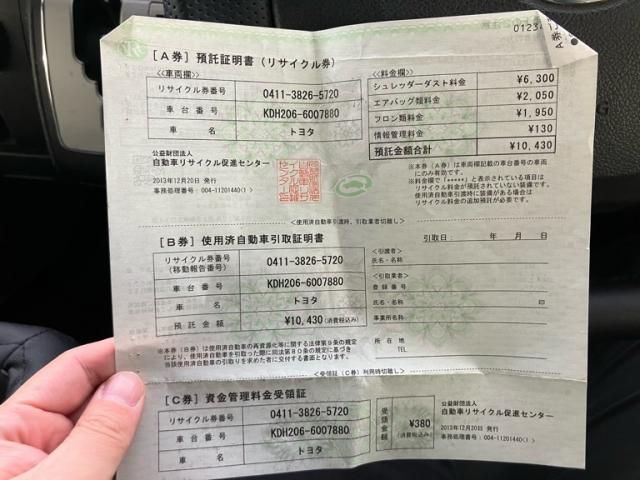 01234
[A券] 預託証明書(リサイクル券)
<<車両欄>>
リサイクル券番号 0411-3826-5720
車台番号 KDH206-6007880
車名 トヨタ
<<料金欄>>
シュレッダーダスト料金 ¥6,300
エアバッグ類料金 ¥2,050
フロン類料金 ¥1,950
情報管理料金 ¥130
預託金額合計 ¥10,430
公益財団法人
自動車リサイクル促進センター
2013年12月20日 発行
事務処理番号:004-11201440(1)
※本券(A券)は車両欄記載の車台番号の車両
にのみ有効です。
※料金欄で「*****」と表示されている項目は
リサイクル料金が預託されていない装備です。
使用済自動車引渡時に装備がある場合は
リサイクル料金の追加預託が必要です。
<使用済自動車引渡時、引取業者切離し>
[B券] 使用済自動車引取証明書
引取日: 年 月 日
リサイクル券番号
(移動報告番号) 0411-3826-5720
車台番号 KDH206-6007880
車名 トヨタ
預託金額 ¥10,430(消費税込み)
<引渡者>
氏名・名称
<引取業者>
登録番号
氏名・名称 印
事業所名称
所在地
TEL
※本券(B券)は使用済自動車の再資源化等に関する法律第9条の規定
により、使用済自動車を引取った際に同法第80条の規定に基づき
当該使用済自動車の引取りを求めた者に交付する書面となります。
<受領証(C券)利用時切離し>
[C券] 資金管理料金受領証
リサイクル券番号 0411-3826-5720
車台番号 KDH206-6007880
車名 トヨタ
受領金額 ¥380
(消費税込み)
公益財団法人
自動車リサイクル促進センター
2013年12月20日 発行
事務処理番号:004-11201440(1)